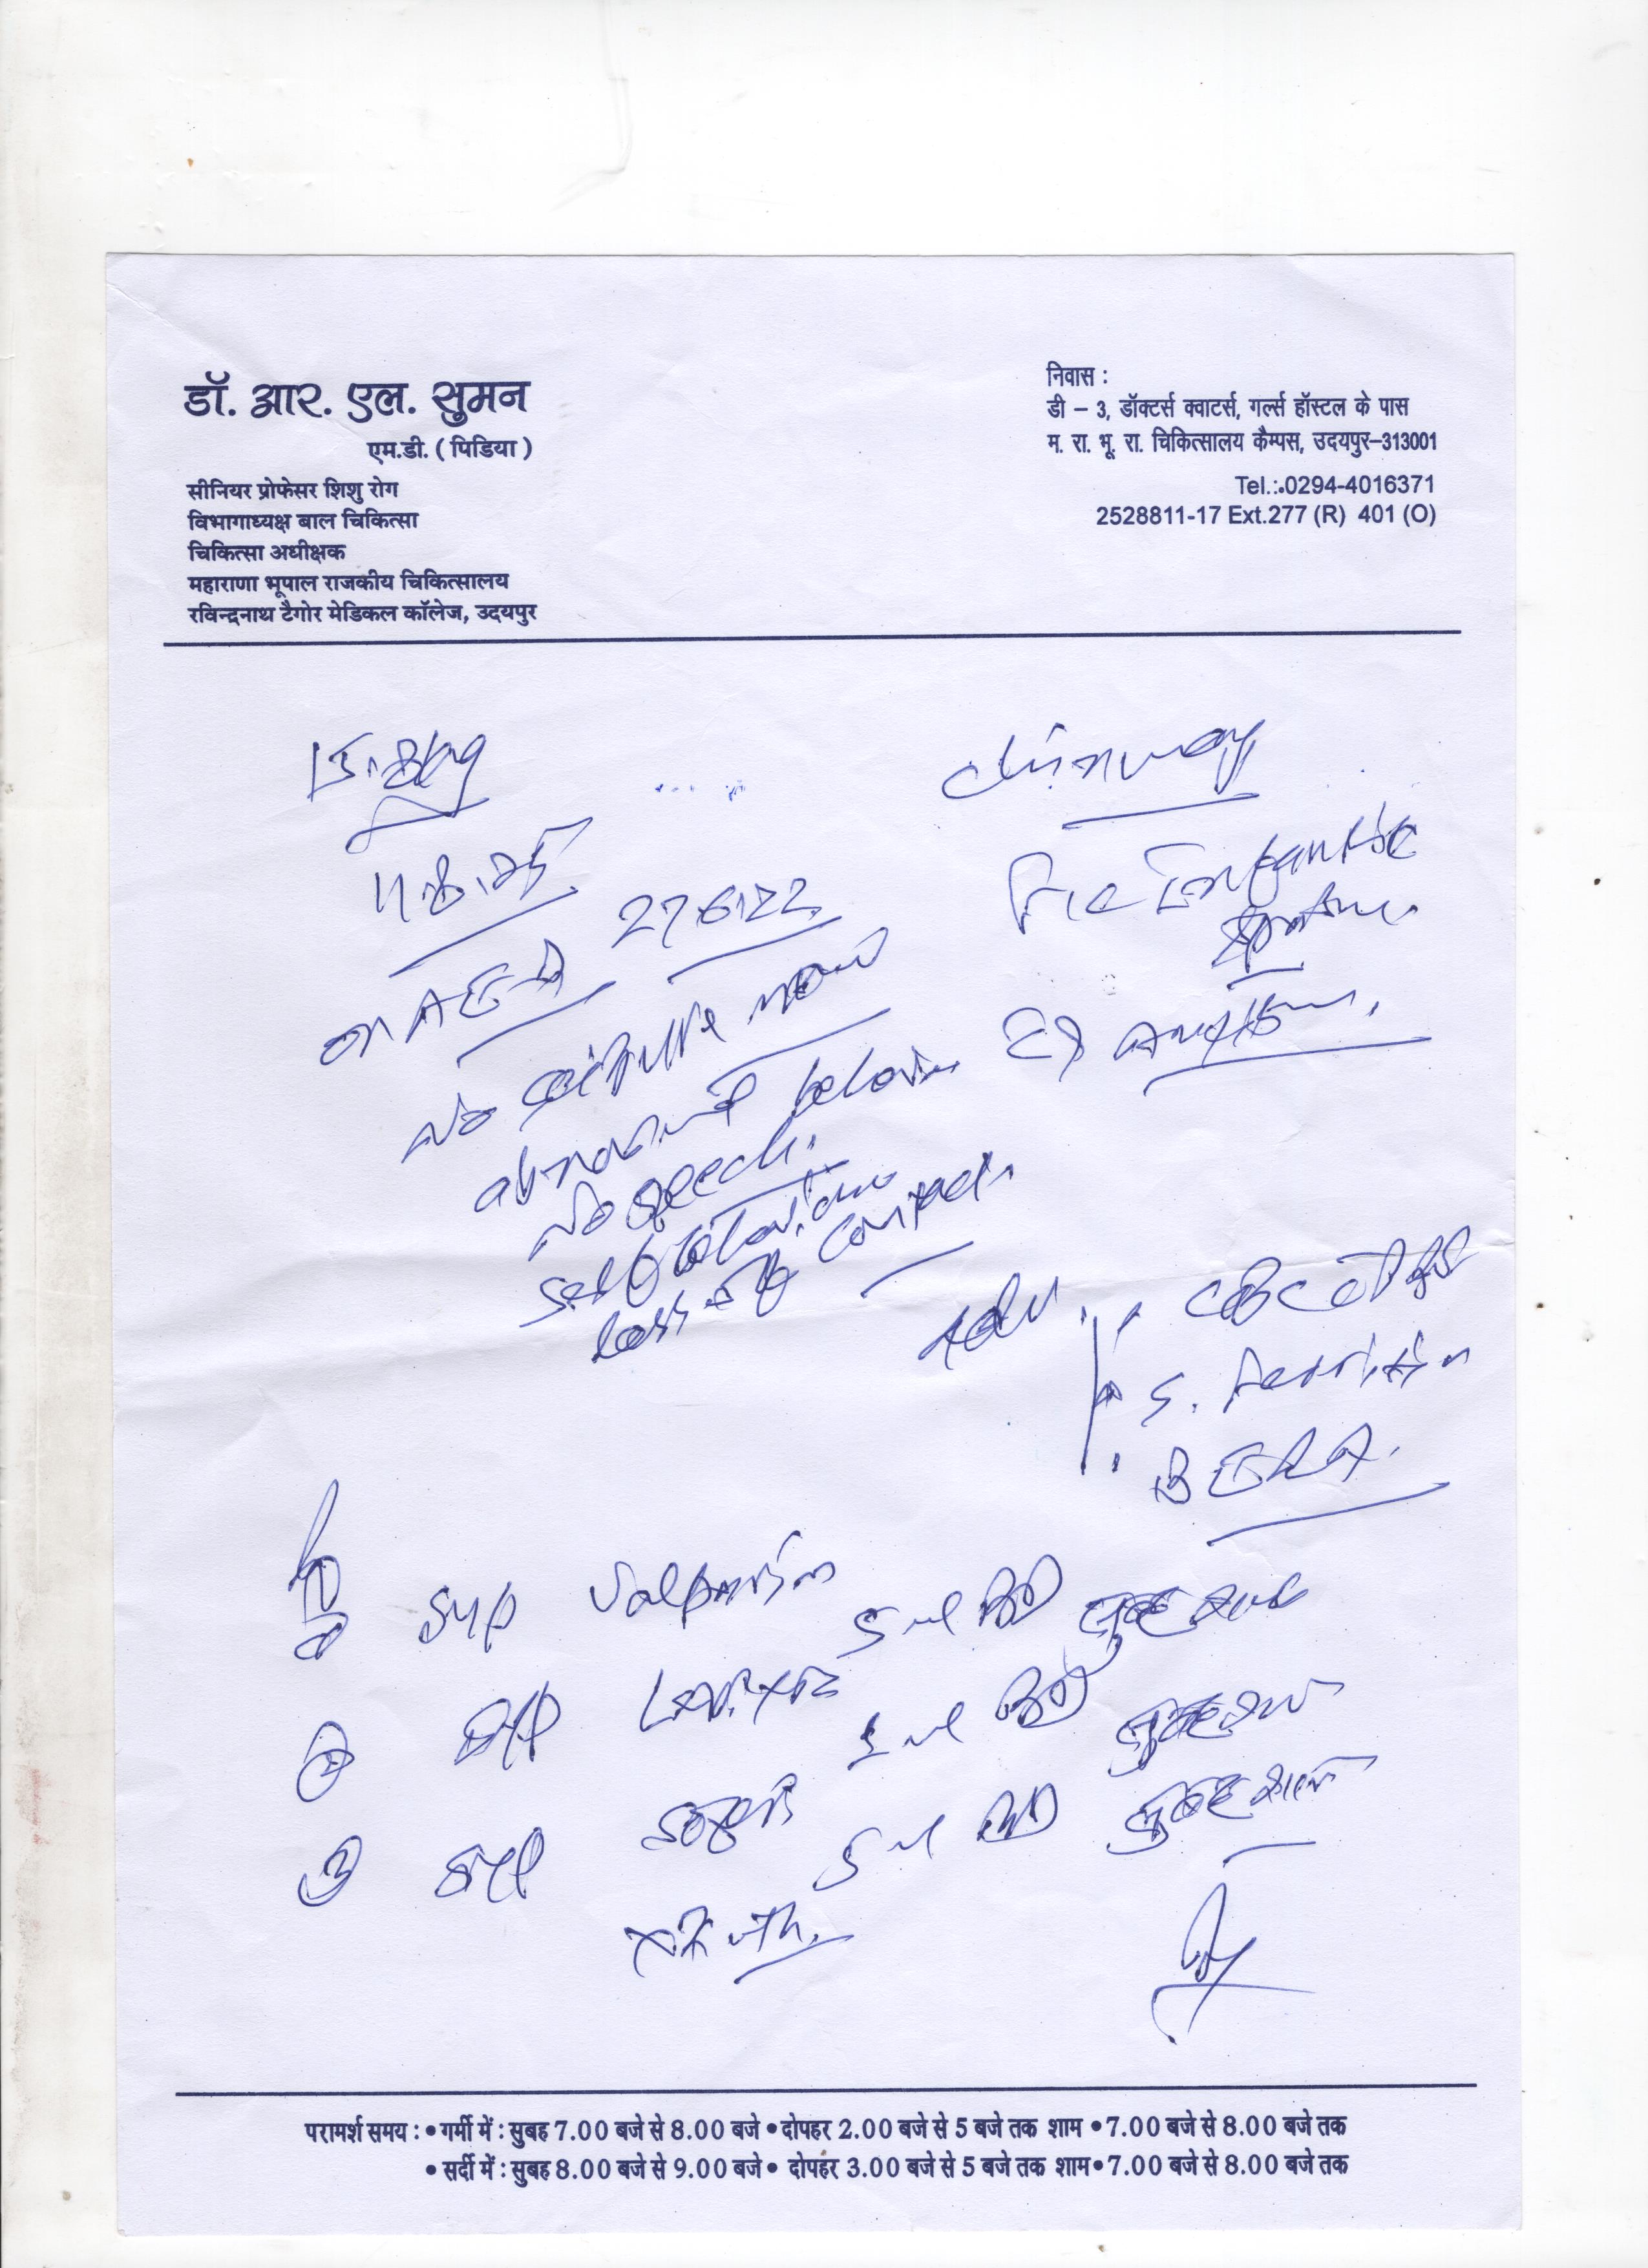 डॉ. आर. एल. सुमन
एम.डी. ( पिडिया )
सीनियर प्रोफेसर शिशु रोग
विभागाध्यक्ष बाल चिकित्सा
चिकित्सा अधीक्षक
महाराणा भूपाल राजकीय चिकित्सालय
रविन्द्रनाथ टैगोर मेडिकल कॉलेज, उदयपुर
निवास :
डी – 3, डॉक्टर्स क्वाटर्स, गर्ल्स हॉस्टल के पास
म. रा. भू. रा. चिकित्सालय कैम्पस, उदयपुर–313001
Tel.:.0294-4016371
2528811-17 Ext.277 (R) 401 (O)
Chinmay
27.6.22
Infantile
on AED
No seizure now
abnormal behaviour
No speech.
self behaviour
loss of contact.
Adv. CBC
S. Ferritin
BERA.
① Syp Valparin 5 ml BD सुबह शाम
② Syp ml BD सुबह शाम
③ Syp 5 ml BD सुबह शाम
परामर्श समय : • गर्मी में : सुबह 7.00 बजे से 8.00 बजे • दोपहर 2.00 बजे से 5 बजे तक शाम • 7.00 बजे से 8.00 बजे तक
• सर्दी में : सुबह 8.00 बजे से 9.00 बजे • दोपहर 3.00 बजे से 5 बजे तक शाम • 7.00 बजे से 8.00 बजे तक